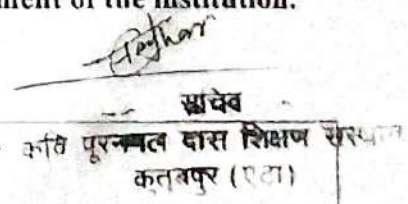 ment of the institution.
सचिव
कवि पूरनमल दास शिक्षण संस्थान
कुतबपुर (एटा)